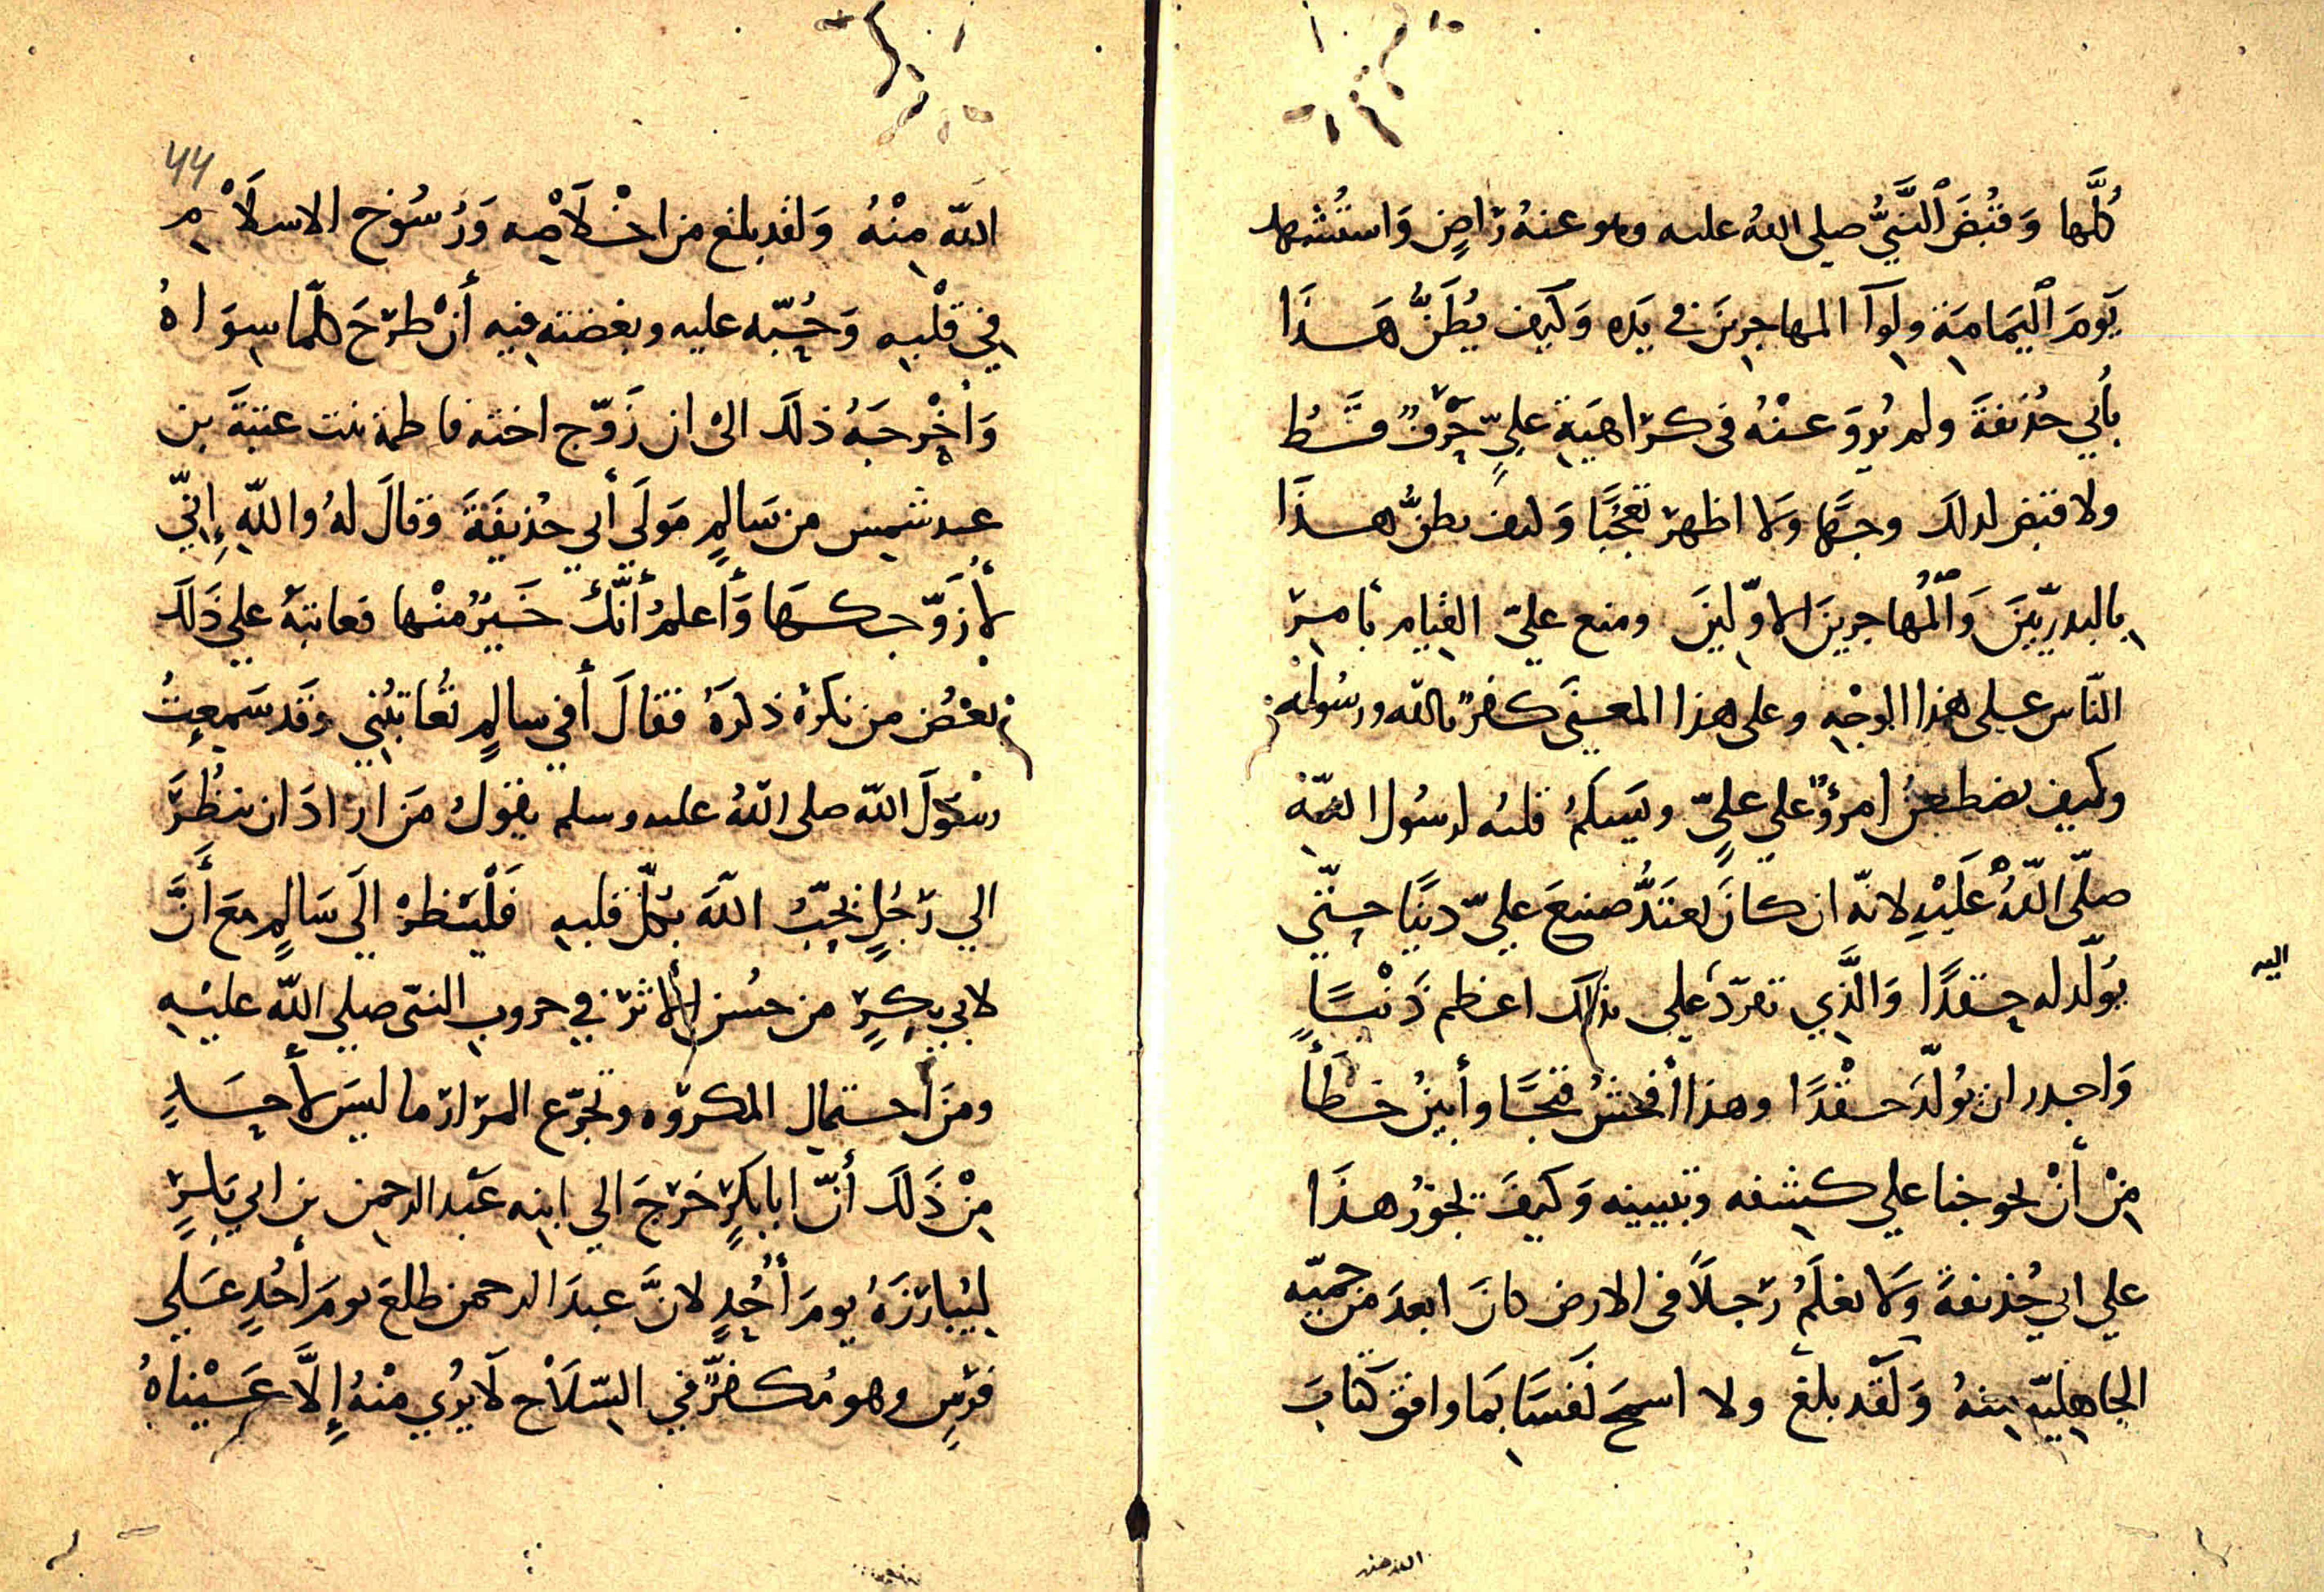 كُلَّها وَقُبِضَ النَّبيُّ صلى اللهُ عليه وهو عنهُ رَاضٍ وَاستُشهد
يَومَ اليَمامَةِ ولِوآ المهاجرِينَ في يَدِه وَكَيف يُظَنُّ هَذَا
بأَبي حُذَيفةَ ولم يُروَ عنْهُ في كرَاهيَةِ عليٍّ حَرْفٌ قَطُّ
ولا قبَض لذلكَ وجهًا وَلا اظهرَ تعَجُّبًا وَكيف يظنُّ هذَا
بالبدريّينَ وَالْمُهاجرينَ الاوّلينَ ومنع عليّ القيامِ بامرِ
النّاس على هذا الوجْهِ وعلى هذا المعنَى كفرٌ بالله ورسُوله
وكيف يضطغنُ امرؤٌ على عليٍّ ويَسلَمُ قلبُه لرسُول اللهِ
صلّى اللهُ عَلَيْهِ لانّه ان كانَ يعتَدُّ صنيعَ عليّ دينًا حتّى
يُولّد له حِقدًا وَالَّذي تفرّدَ علي بذلك اعظم ذَنْبًا
وَاجدر ان يُولّدَ حقْدًا وهذا أفحشُ قبحًا وأبينُ خَطَأً
مِنْ أنْ يحوجنا علي كشفه وتبيينه وَكيفَ يجوزُ هذَا
على ابي حُذيفةَ وَلا نعْلَمُ رَجلاً في الارض كانَ ابعدَ من حميّه
الجاهِليّه مِنهُ وَلَقد بلغَ ولا اسمَح نَفسًا بمَا وافق كتابَ
اليه
الله منه
٤٤
اللهِ مِنْهُ وَلقد بلغ من اخْلَاصِه وَرُسُوخ الاسلَاْمِ
في قلْبهِ وَحُبّه عليه وبغضته فيه أنْ طرَحَ كلّما سِوَاهُ
وَأخْرجَهُ ذلكَ الىٰ ان زَوّج اختَه فاطمة بنت عتبَةَ بن
عبد شمسٍ من سَالمٍ مَولَى أبي حُذيفَةَ وَقالَ لهُ واللهِ إنّي
لأُزَوّجكَهَا وَأَعلمُ أنّكَ خَيرٌ منْها فعاتبَهُ على ذَلكَ
بعْضُ من نكرَهُ ذكرَهُ فقالَ أفي سالمٍ تُعاتبُني وقَد سَمِعتُ
رسُولَ اللهِ صلى اللهُ عليه وسلم يقولُ مَن ارادَ ان ينظُرَ
الي رَجُلٍ يُحِبُّ اللهَ بكلّ قلبهِ فَلْيَنظرْ الَي سَالمٍ معَ أَنَّ
لابي بكرٍ من حسُنِ الأثر في حروب النبّى صلى الله عليْهِ
ومن احتمالِ المكروه وتجرّع المرَارَ ما ليسَ لأحَدٍ
مِنْ ذَلكَ أنّ ابا بكرٍ خَرَجَ الي ابنِه عَبد الرحمن بن ابي بَكرٍ
ليُبارزَهُ يومَ أُحُدٍ لانَّ عبدَ الرحمن طلعَ يومَ أحُدٍ عَلى
فَرَسٍ وهو مُكفّرٌ في السّلَاْح لَا يُرى منْهُ إلَّا عَيْناهُ